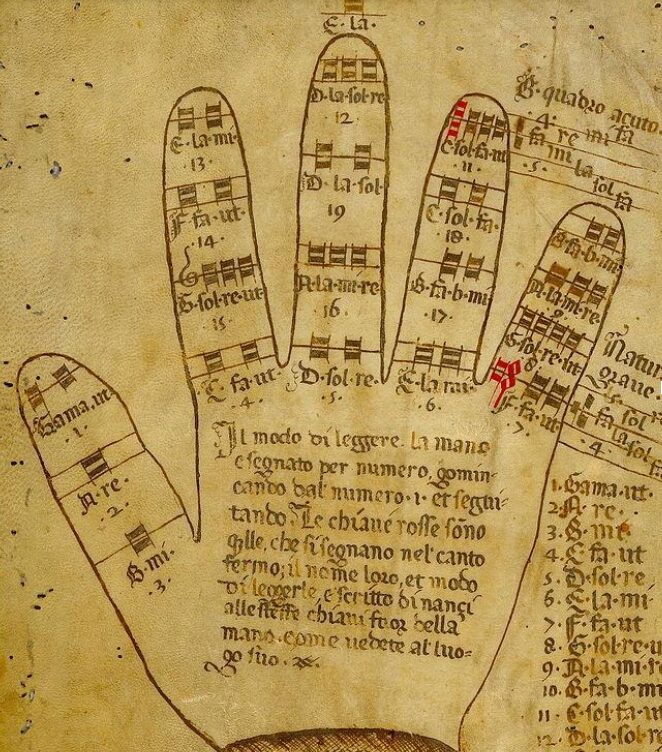 E·la·
D·la·sol·re
12·
E·la·mi·
13·
C·sol·fa·ut
11·
B·quadro acuto
·4·
fa re mi fa
·5· fa mi la sol fa
D·la·sol·
19
F·fa·ut
·14·
C·sol·fa·
18·
B·fa·b·mi·
G·sol·re·ut
15·
A·la·mi·re
16·
B·fa·b·mi
·17·
A·la·mi·re
9·
G·sol·re·ut
8
C·fa·ut·
·4·
D·sol·re·
·5·
E·la·mi·
·6·
F·fa·ut·
·7·
Natur
grave·
sol
fa la sol fa
·4·
Gama·ut·
·1·
A·re·
·2·
B·mi·
·3·
Il modo di leggere· la mano
e segnato per numero, comin-
cando dal numero·1· et segui-
tando· Le chiave rosse sono
qlle, che si segnano nel canto
fermo; il nome loro, et modo
di leggerle, e scritto dinançi
alle stesse chiavi fuor della
mano· come vedete al luo-
go suo·
1·Gama·ut·
2·A·re·
3·B·mi·
4·C·fa·ut
5·D·sol·re
6·E·la·mi·
7·F·fa·ut
8·G·sol·re·u
9·A·la·mi·r
10·B·fa·b·m
11·C·sol·fa·u
12·D·la·sol·r